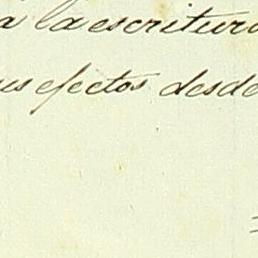 á la escritura
us efectos desde